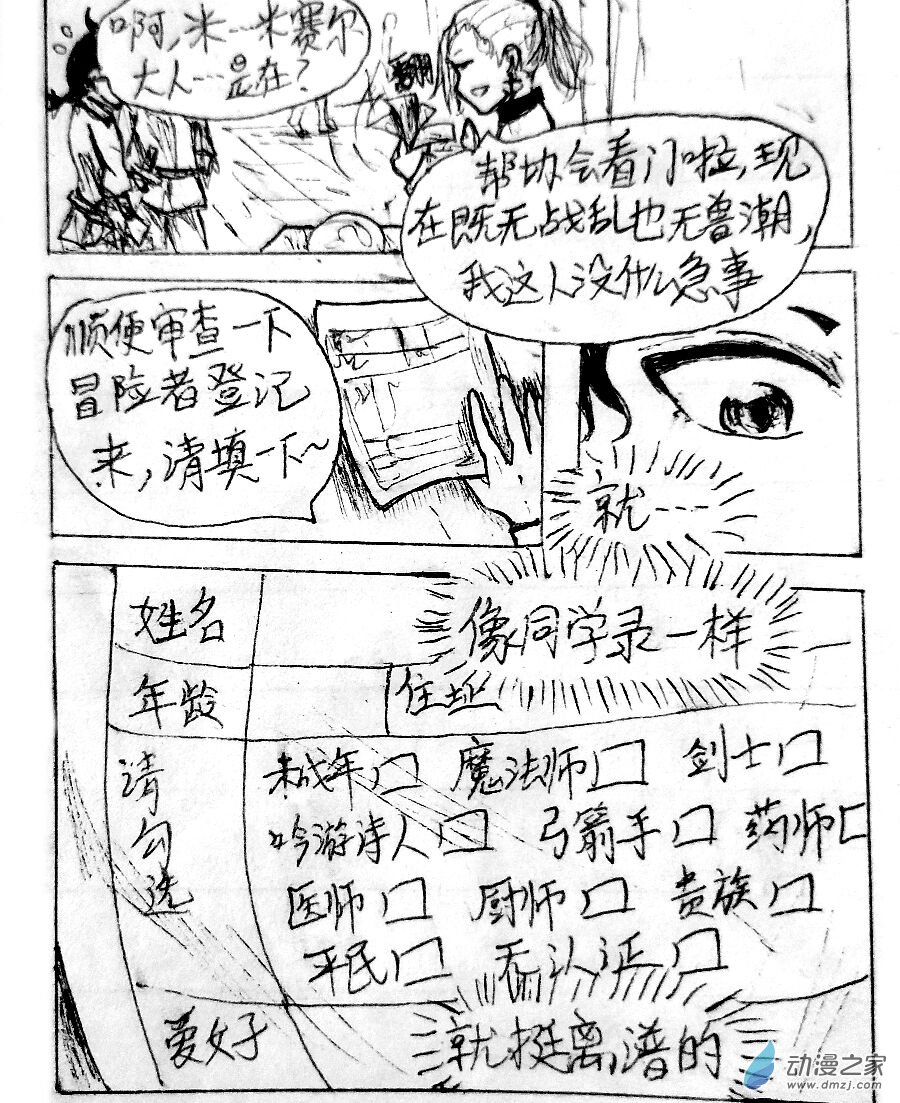 啊,米…米赛尔
大人…是在?
翻
帮协会看门啦,现
在既无战乱也无兽潮,
我这人没什么急事
顺便审查一下
冒险者登记
来,请填一下~
就……
像同学录一样
姓名
年龄 住址
请勾选
未成年口 魔法师口 剑士口
吟游诗人口 弓箭手口 药师口
医师口 厨师口 贵族口
平民口 口
爱好
就挺离谱的
动漫之家
www.dmzj.com